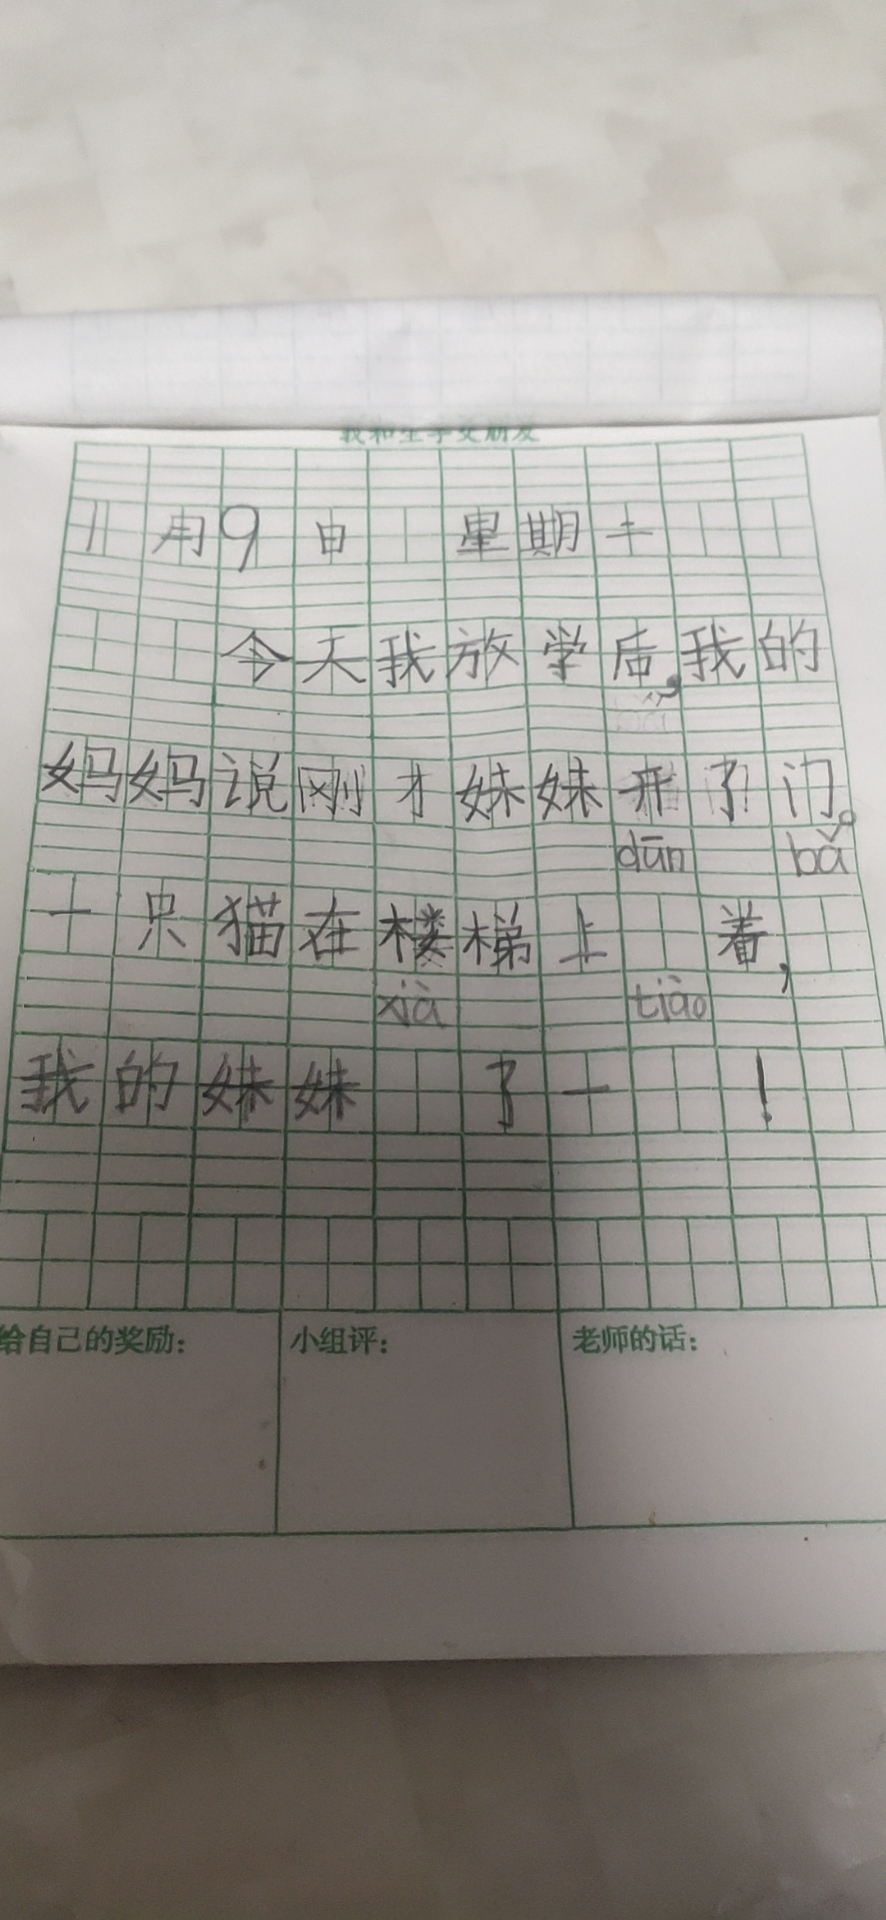 我和生字交朋友
11月9日 星期二
今天我放学后,我的
妈妈说刚才妹妹开了门。
dūn bǎ
一只猫在楼梯上 着,
xià tiào
我的妹妹 了一 !
给自己的奖励: 小组评: 老师的话: